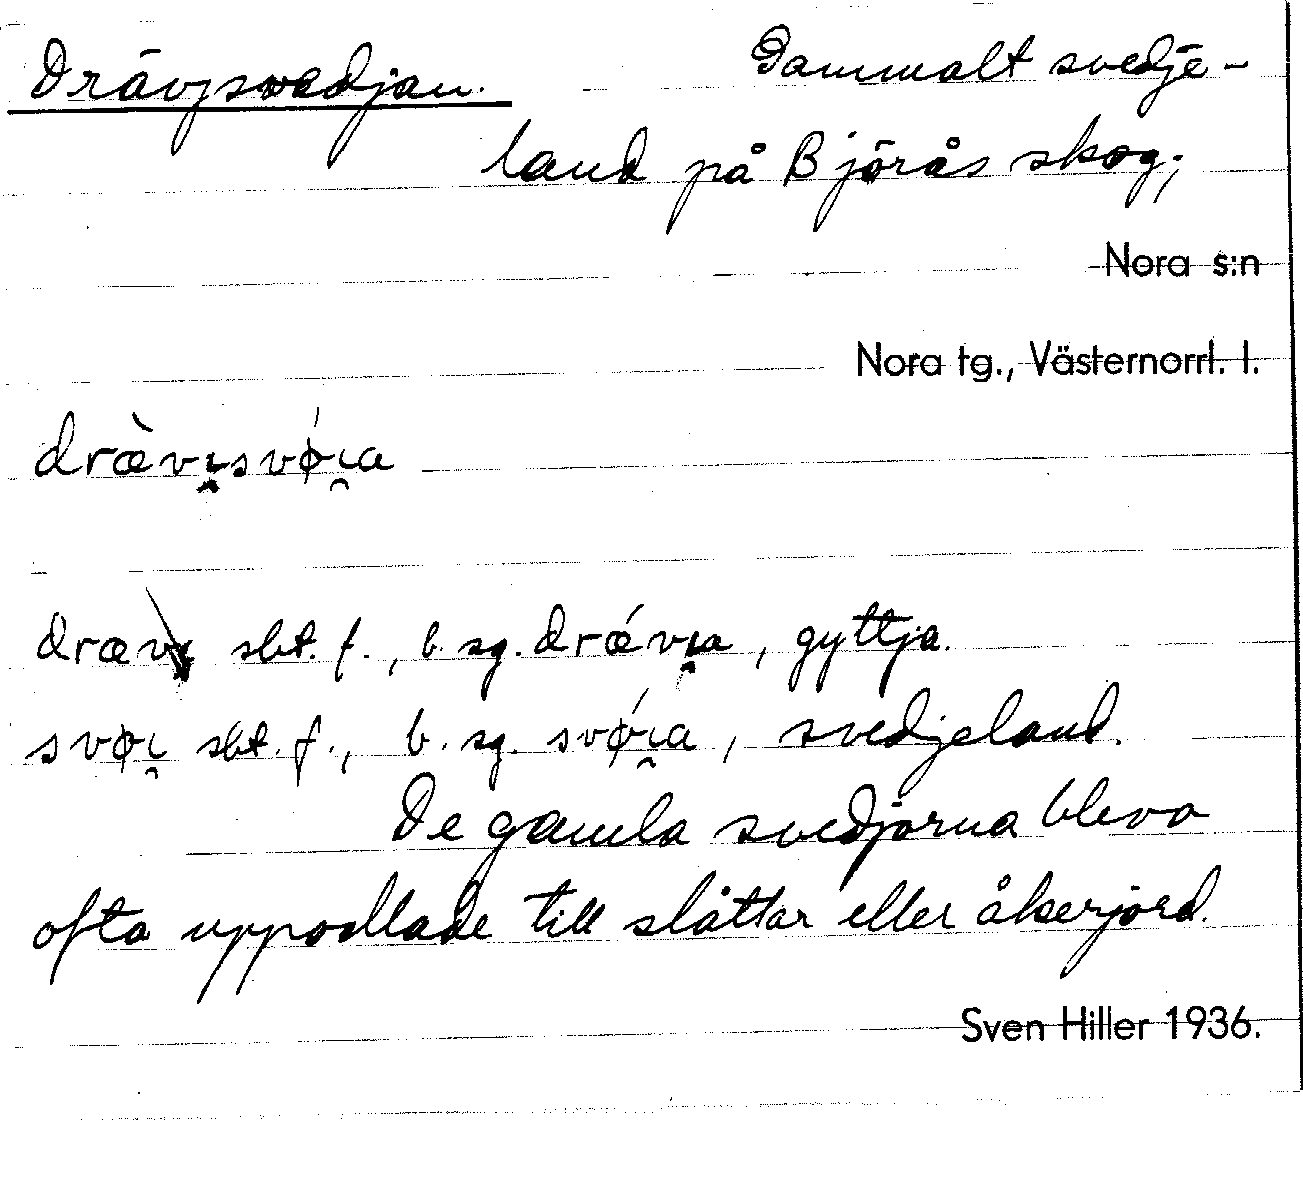 Drävjsvedjan. Gammalt svedje-
land på Björås skog;
Nora s:n
Nora tg., Västernorrl. l.
dræ̀vı̯svǿı̯a
drævı̯ sbt. f., b. sg. drǽvı̯a, gyttja.
svøı̯ sbt. f., b. sg. svǿı̯a, svedjeland.
De gamla svedjorna bleva
ofta uppodlade till slåttar eller åkerjord.
Sven Hiller 1936.